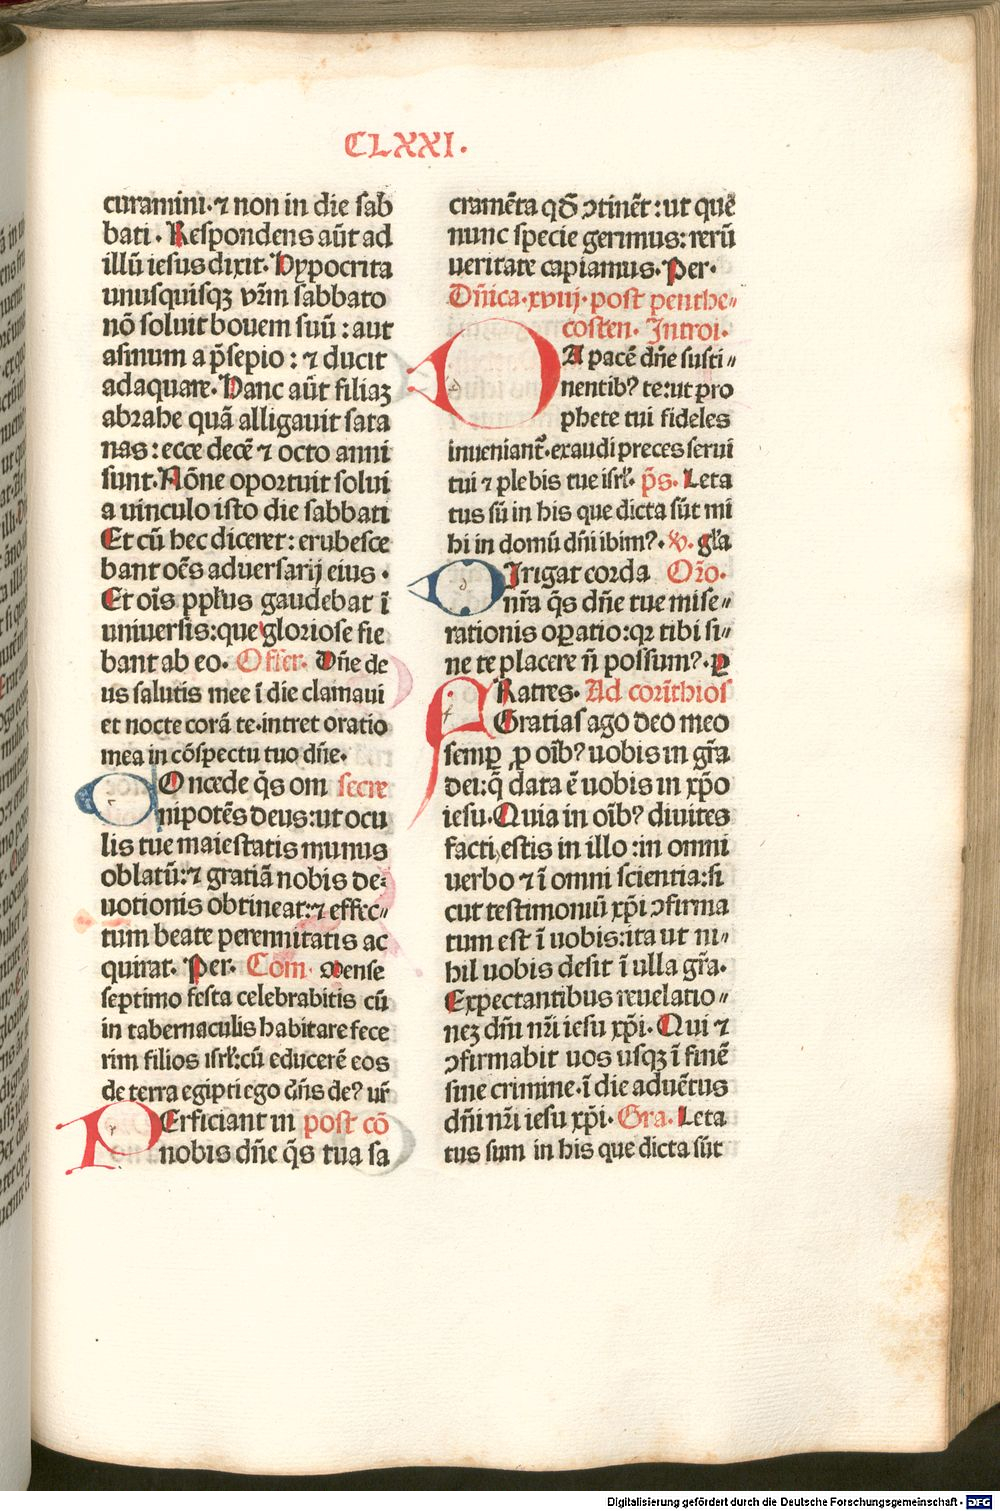 CLXXI.
curamini. ⁊ non in die sab
bati. Respondens aūt ad
illū iesus dixit. Hypocrita
unusquisqꝫ vr̄m sabbato
nō soluit bouem suū : aut
asinum a p̄sepio : ⁊ ducit
adaquare. Hanc aūt filiaꝫ
abrahe quā alligauit sata
nas : ecce decē ⁊ octo anni
sunt. Nōne oportuit solui
a uinculo isto die sabbati
Et cū hec diceret : erubesce
bant oēs aduersarij eius .
Et oīs ppl̄us gaudebat ī
uniuersis: que gloriose fie
bant ab eo. Offer. Dn̄e de
us salutis mee ī die clamaui
et nocte corā te. intret oratio
mea in cōspectu tuo dn̄e.
Concede q̄s om secre
nipotēs deus: ut ocu
lis tue maiestatis munus
oblatū: ⁊ gratiā nobis de⸗
uotionis obtineat: ⁊ effec⸗
tum beate perennitatis ac
quirat. Per. Com. Mense
septimo festa celebrabitis cū
in tabernaculis habitare fece
rim filios isrl̄: cū educerē eos
de terra egipti ego dn̄s deꝰ ur̄
PErficiant in post cō
nobis dn̄e q̄s tua sa
cramēta qđ ꝯtinēt : ut quē
nunc specie gerimus: rerū
ueritate capiamus. Per.
Dn̄ica. xviij. post penthe⸗
costen. Introi.
DA pacē dn̄e susti⸗
nentibꝰ te: ut pro
phete tui fideles
inueniant᷑. exaudi preces serui
tui ⁊ plebis tue isrl̄. p̄s. Leta
tus sū in his que dicta sūt mi
hi in domū dn̄i ibimꝰ. v̄. gl̄a
DIrigat corda Or̄o.
nr̄a q̄s dn̄e tue mise⸗
rationis oꝑatio: qꝛ tibi si⸗
ne te placere n̄ possumꝰ. ꝑ
FRatres. Ad corīthios
Gratias ago deo meo
semꝑ ꝓ oībꝰ uobis in gr̄a
dei: q̄ data ē uobis in xp̄o
iesu. Quia in oībꝰ diuites
facti estis in illo : in omni
uerbo ⁊ ī omni scientia: si
cut testimoniū xp̄i ꝯfirma
tum est ī uobis: ita ut ni⸗
hil uobis desit ī ulla gr̄a.
Expectantibus reuelatio⸗
neꝫ dn̄i nr̄i iesu xp̄i. Qui ⁊
ꝯfirmabit uos usqꝫ ī finē
sine crimine. ī die aduētus
dn̄i nr̄i iesu xp̄i. Gra. Leta
tus sum in his que dicta sūt
Digitalisierung gefördert durch die Deutsche Forschungsgemeinschaft - DFG